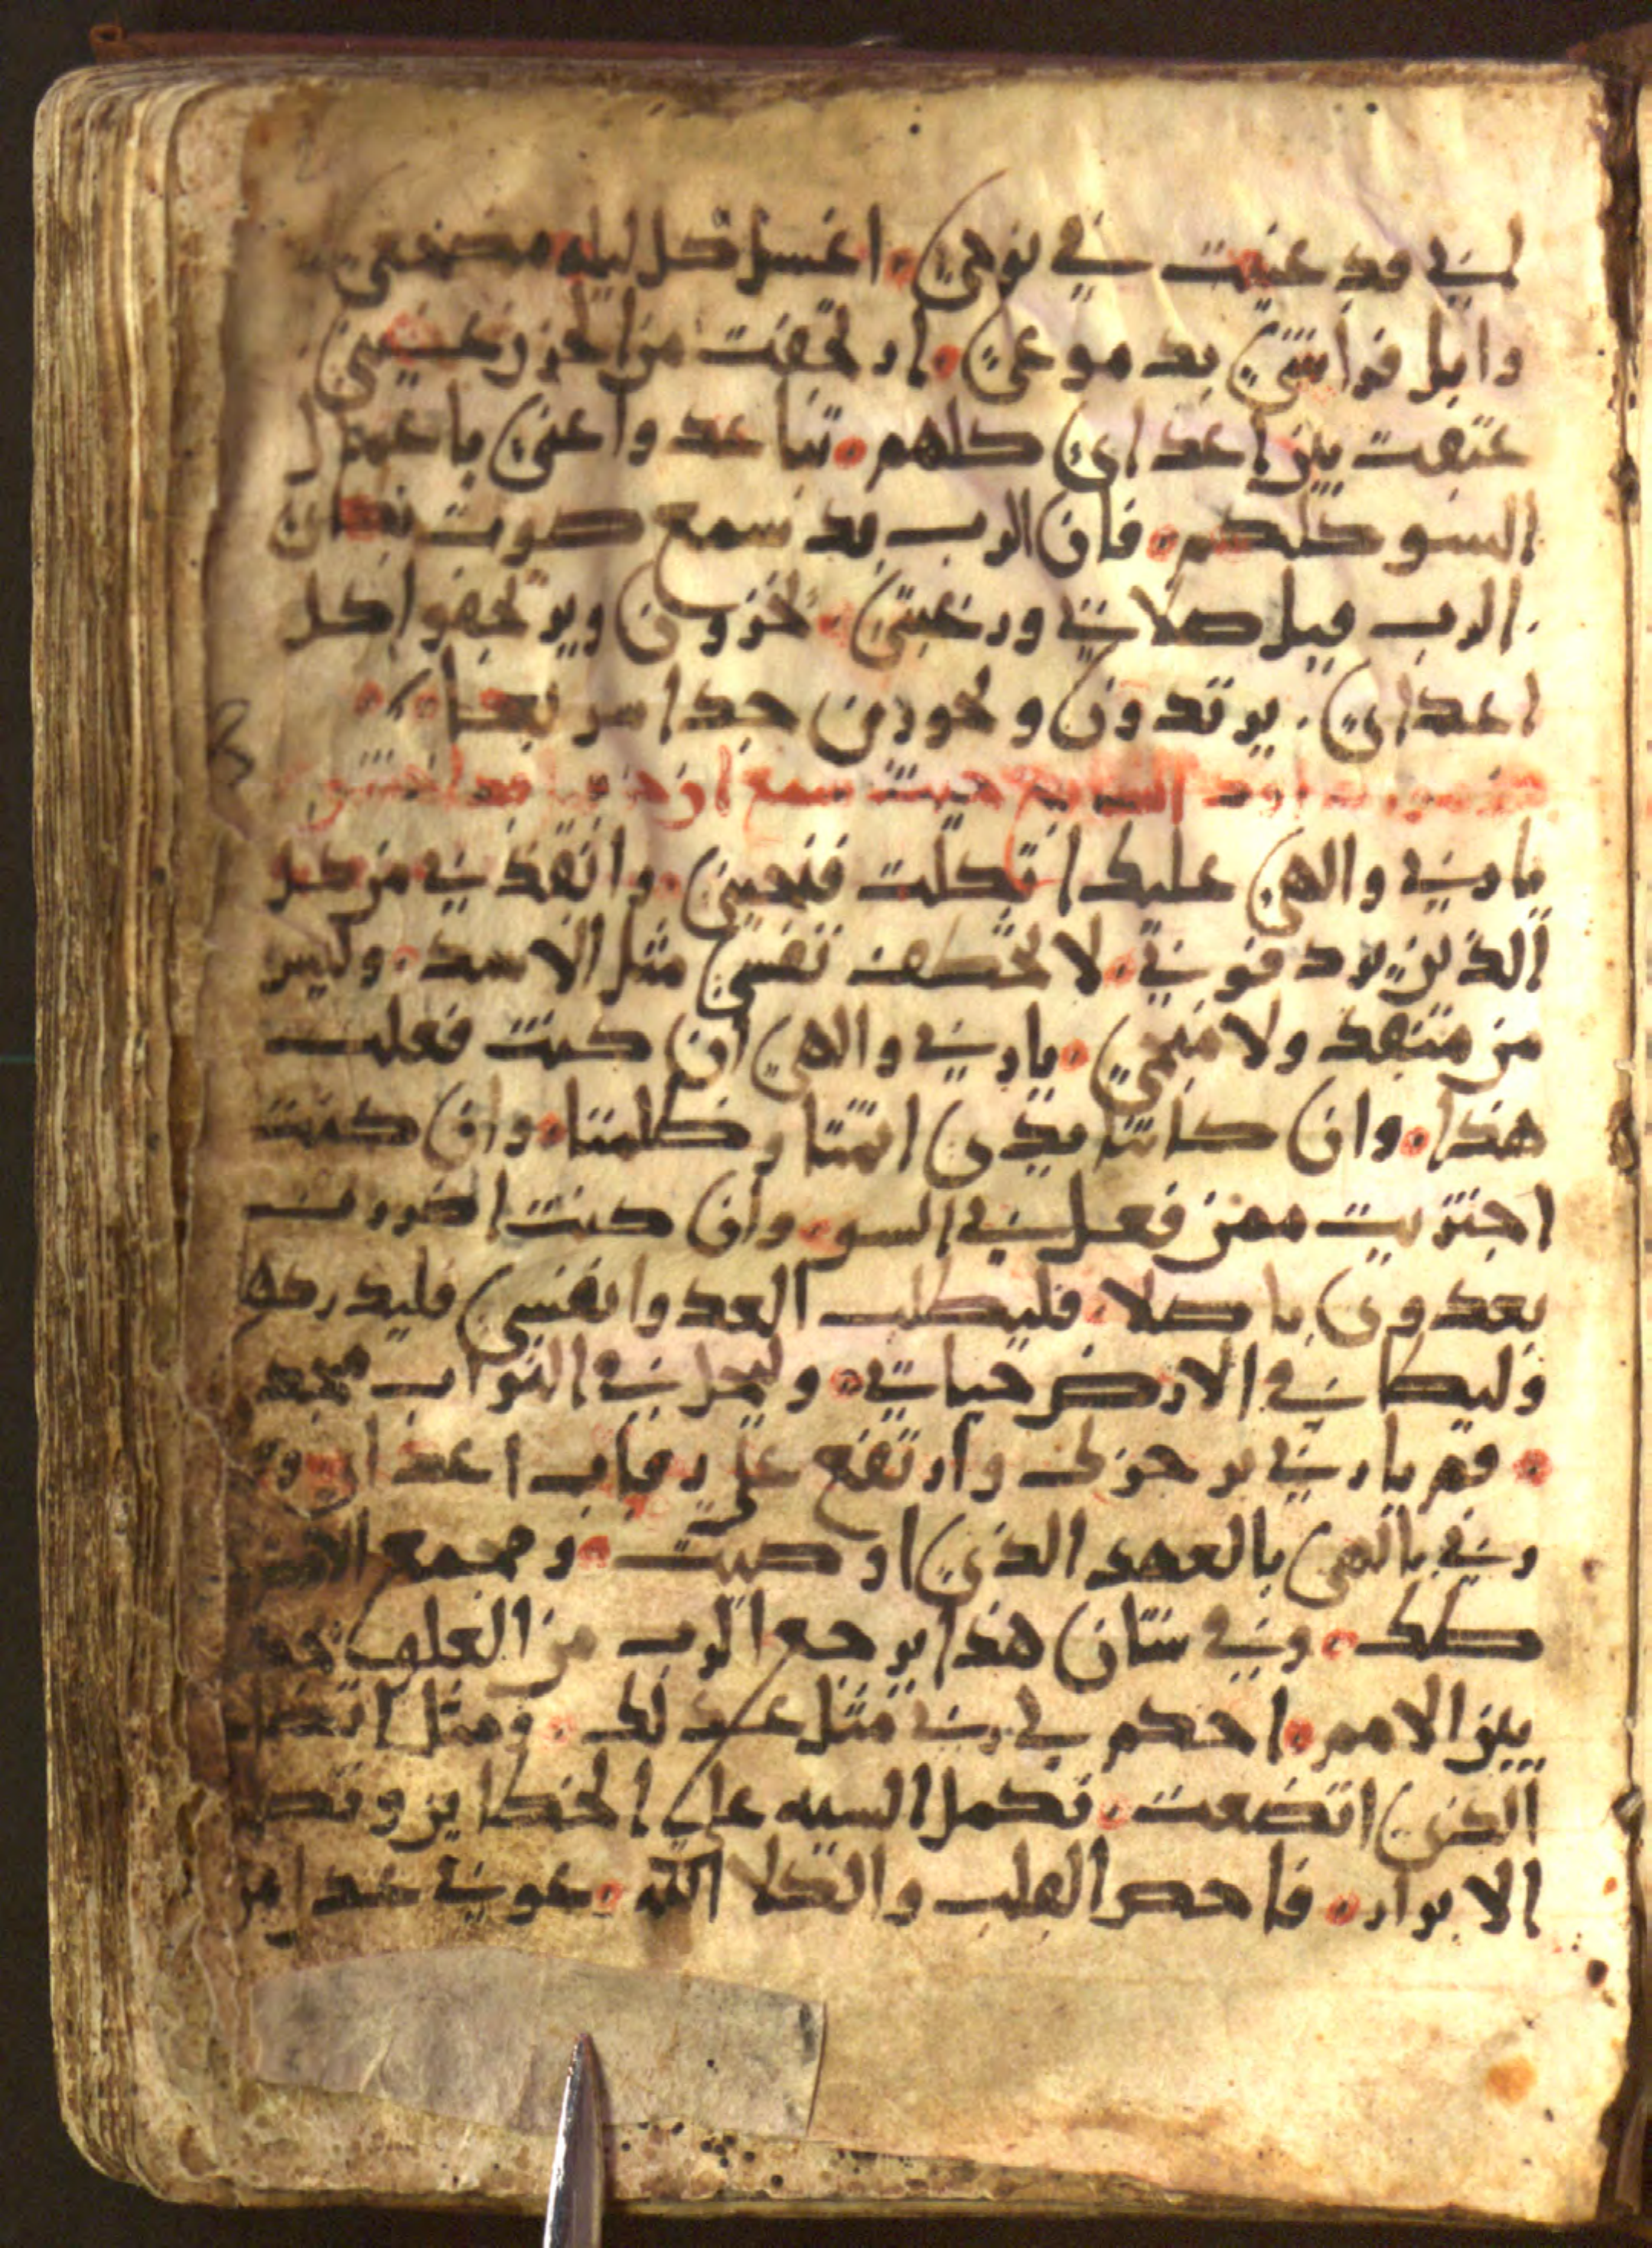 لـنـي قد عنيت في نوحي • اغسل كل ليله مضجعي
وابل فراشي بدموعي • ارتجفت من الحزن عيني
عتقت بين اعداي كلهم • تباعدوا عني يا عمال
السو كلكم • فان الرب قد سمع صوت بكاي
الرب قبل صلاتي ورغبتي • يخزون ويرتجفوا كل
اعداي • يرتدون ويخورون جدا سريعا
مزمور داود السابع حيث سمع
يا ربي والهي عليك اتكلت فنجيني • وانقذني من كل
الذين يردفوني • لا يخطف نفسي مثل الاسد • وليس
من منقذ ولا منجي • يا ربي والهي ان كنت فعلت
هذا • وان كانتا يدي اثمتا وظلمتا • وان كنت
اجتزيت ممن فعل بي السو • وان كنت اضررت
بعدوي باطلا • فليطلب العدوا نفسي فليدركه
وليطا في الارض حياتي • وليحل في التراب مجد
• قم يا رب برجزك وارتفع على رقاب اعداي • وق
رب يا الهي بالعهد الذي اوصيت • وجمع الامم
كلك • وفي شان هذا يرجع الرب من العلو • يحكم
بين الامم • احكم لي رب مثل عدلك • ومثل اتضا
الذي اتضعت • تكمل السيه على الخطايين وتصلح
الابرار • فاحص القلب والكلا الله • عوني عند الله من